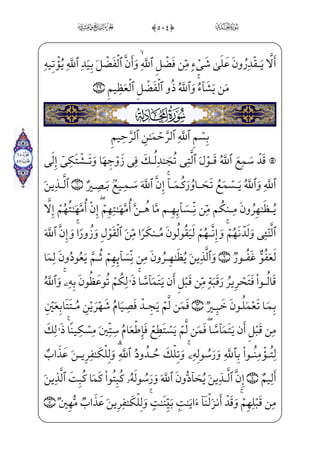 سُورَةُ الحَدِيدِ
﴿٥٠٤﴾
أَلَّا يَقْدِرُونَ عَلَىٰ شَيْءٍ مِّن فَضْلِ ٱللَّهِ ۙ وَأَنَّ ٱلْفَضْلَ بِيَدِ ٱللَّهِ يُؤْتِيهِ
مَن يَشَآءُ ۚ وَٱللَّهُ ذُو ٱلْفَضْلِ ٱلْعَظِيمِ ﴿٢٩﴾
سُورَةُ المُجَادِلَةِ
بِسْمِ ٱللَّهِ ٱلرَّحْمَـٰنِ ٱلرَّحِيمِ
۞ قَدْ سَمِعَ ٱللَّهُ قَوْلَ ٱلَّتِى تُجَـٰدِلُكَ فِى زَوْجِهَا وَتَشْتَكِىٓ إِلَى
ٱللَّهِ وَٱللَّهُ يَسْمَعُ تَحَاوُرَكُمَآ ۚ إِنَّ ٱللَّهَ سَمِيعٌۢ بَصِيرٌ ﴿١﴾ ٱلَّذِينَ
يُظَـٰهِرُونَ مِنكُم مِّن نِّسَآئِهِم مَّا هُنَّ أُمَّهَـٰتِهِمْ ۖ إِنْ أُمَّهَـٰتُهُمْ إِلَّا
ٱلَّـٰٓـِٔى وَلَدْنَهُمْ ۚ وَإِنَّهُمْ لَيَقُولُونَ مُنكَرًا مِّنَ ٱلْقَوْلِ وَزُورًا ۚ وَإِنَّ ٱللَّهَ
لَعَفُوٌّ غَفُورٌ ﴿٢﴾ وَٱلَّذِينَ يُظَـٰهِرُونَ مِن نِّسَآئِهِمْ ثُمَّ يَعُودُونَ لِمَا
قَالُوا۟ فَتَحْرِيرُ رَقَبَةٍ مِّن قَبْلِ أَن يَتَمَآسَّا ۚ ذَٰلِكُمْ تُوعَظُونَ بِهِۦ ۚ وَٱللَّهُ
بِمَا تَعْمَلُونَ خَبِيرٌ ﴿٣﴾ فَمَن لَّمْ يَجِدْ فَصِيَامُ شَهْرَيْنِ مُتَتَابِعَيْنِ
مِن قَبْلِ أَن يَتَمَآسَّا ۖ فَمَن لَّمْ يَسْتَطِعْ فَإِطْعَامُ سِتِّينَ مِسْكِينًا ۚ ذَٰلِكَ
لِتُؤْمِنُوا۟ بِٱللَّهِ وَرَسُولِهِۦ ۚ وَتِلْكَ حُدُودُ ٱللَّهِ ۗ وَلِلْكَـٰفِرِينَ عَذَابٌ
أَلِيمٌ ﴿٤﴾ إِنَّ ٱلَّذِينَ يُحَآدُّونَ ٱللَّهَ وَرَسُولَهُۥ كُبِتُوا۟ كَمَا كُبِتَ ٱلَّذِينَ
مِن قَبْلِهِمْ ۚ وَقَدْ أَنزَلْنَآ ءَايَـٰتٍۭ بَيِّنَـٰتٍ ۚ وَلِلْكَـٰفِرِينَ عَذَابٌ مُّهِينٌ ﴿٥﴾